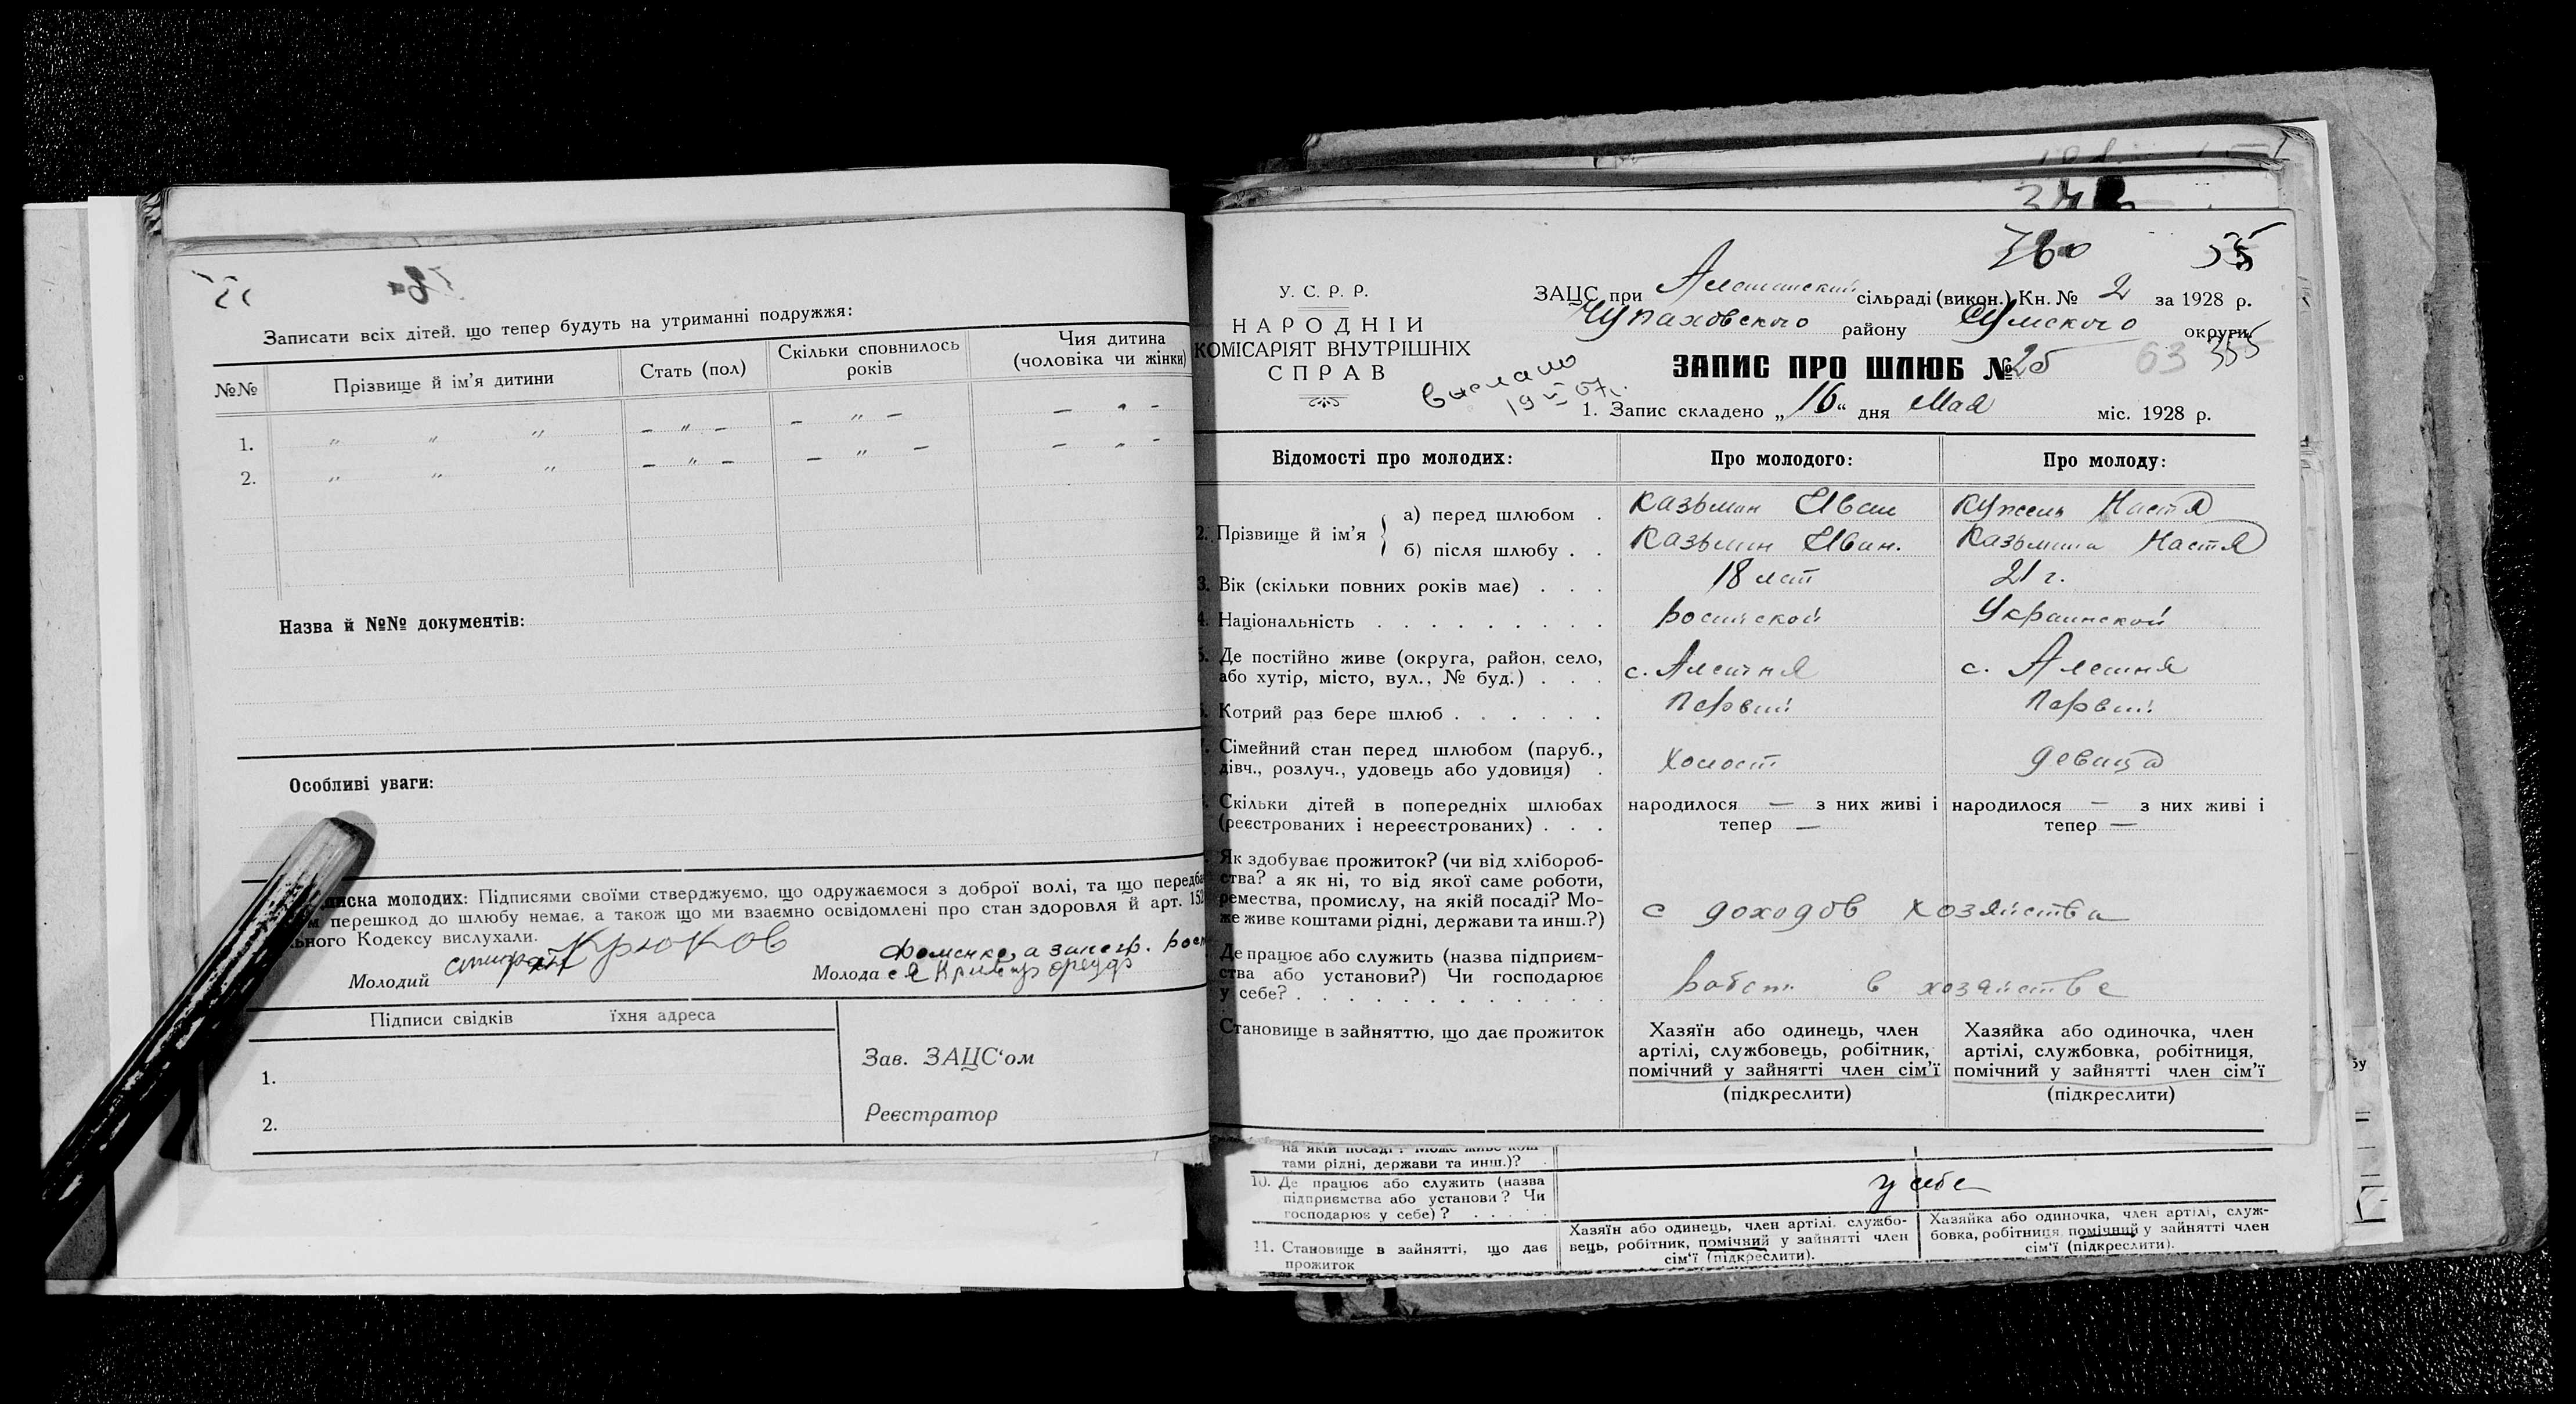 55
Записати всіх дітей, що тепер будуть на утриманні подружжя:
№№ Прізвище й ім'я дитини Стать (пол) Скільки сповнилось років Чия дитина (чоловіка чи жінки)
1. " " " — " — — " — — " —
2. " " " — " — — " — — " —
Назва й №№ документів:
Особливі уваги:
писка молодих: Підписями своїми стверджуємо, що одружаємося з доброї волі, та що передба
м перешкод до шлюбу немає, а також що ми взаємно освідомлені про стан здоров'я й арт. 152
ьного Кодексу вислухали.
Молодий Крюков
Молода Фоменко, а за
Підписи свідків їхня адреса
1.
2.
Зав. ЗАЦС'ом
Реєстратор
760 55
У. С. Р. Р.
НАРОДНІЙ
КОМІСАРІЯТ ВНУТРІШНІХ
СПРАВ
ЗАЦС при Алешанский сільраді (викон.) Кн. № 2 за 1928 р.
Чупаховского району Сумского округи
355
63
ЗАПИС ПРО ШЛЮБ № 25
выслано
19 VI 57г.
1. Запис складено „16" дня Мая міс. 1928 р.
Відомості про молодих: Про молодого: Про молоду:
2. Прізвище й ім'я { а) перед шлюбом . Казьмин Иван Кужель Настя
б) після шлюбу . . Казьмин Иван. Казьмина Настя
3. Вік (скільки повних років має) . . . 18 лет 21 г.
4. Національність . . . . . . . . . Росийской Украинской
5. Де постійно живе (округа, район, село,
або хутір, місто, вул., № буд.) . . . с. Алешня с. Алешня
6. Котрий раз бере шлюб . . . . . . Первий Первий
7. Сімейний стан перед шлюбом (паруб.,
дівч., розлуч., удовець або удовиця) . Холост девица
Скільки дітей в попередніх шлюбах народилося — з них живі і народилося — з них живі і
(реєстрованих і нереєстрованих) . . . тепер — тепер —
Як здобуває прожиток? (чи від хлібороб-
ства? а як ні, то від якої саме роботи,
ремества, промислу, на якій посаді? Мо-
же живе коштами рідні, держави та инш.?) с доходов хозяйства
Де працює або служить (назва підприєм-
ства або установи?) Чи господарює
у себе? . . . . . . . . . . . . в хозяйстве
Становище в зайняттю, що дає прожиток
Хазяїн або одинець, член
артілі, службовець, робітник,
помічний у зайнятті член сім'ї
(підкреслити)
Хазяйка або одиночка, член
артілі, службовка, робітниця,
помічний у зайнятті член сім'ї
(підкреслити)
на якій посаді? Може живе кош-
тами рідні, держави та инш.)?
10. Де працює або служить (назва
підприємства або установи? Чи
господарює у себе)? . . . . . у себе
11. Становище в зайнятті, що дає
прожиток
Хазяїн або одинець, член артілі, службо-
вець, робітник, помічний у зайнятті член
сім'ї (підкреслити).
Хазяйка або одиночка, член артілі, служ-
бовка, робітниця, помічний у зайнятті член
сім'ї (підкреслити).